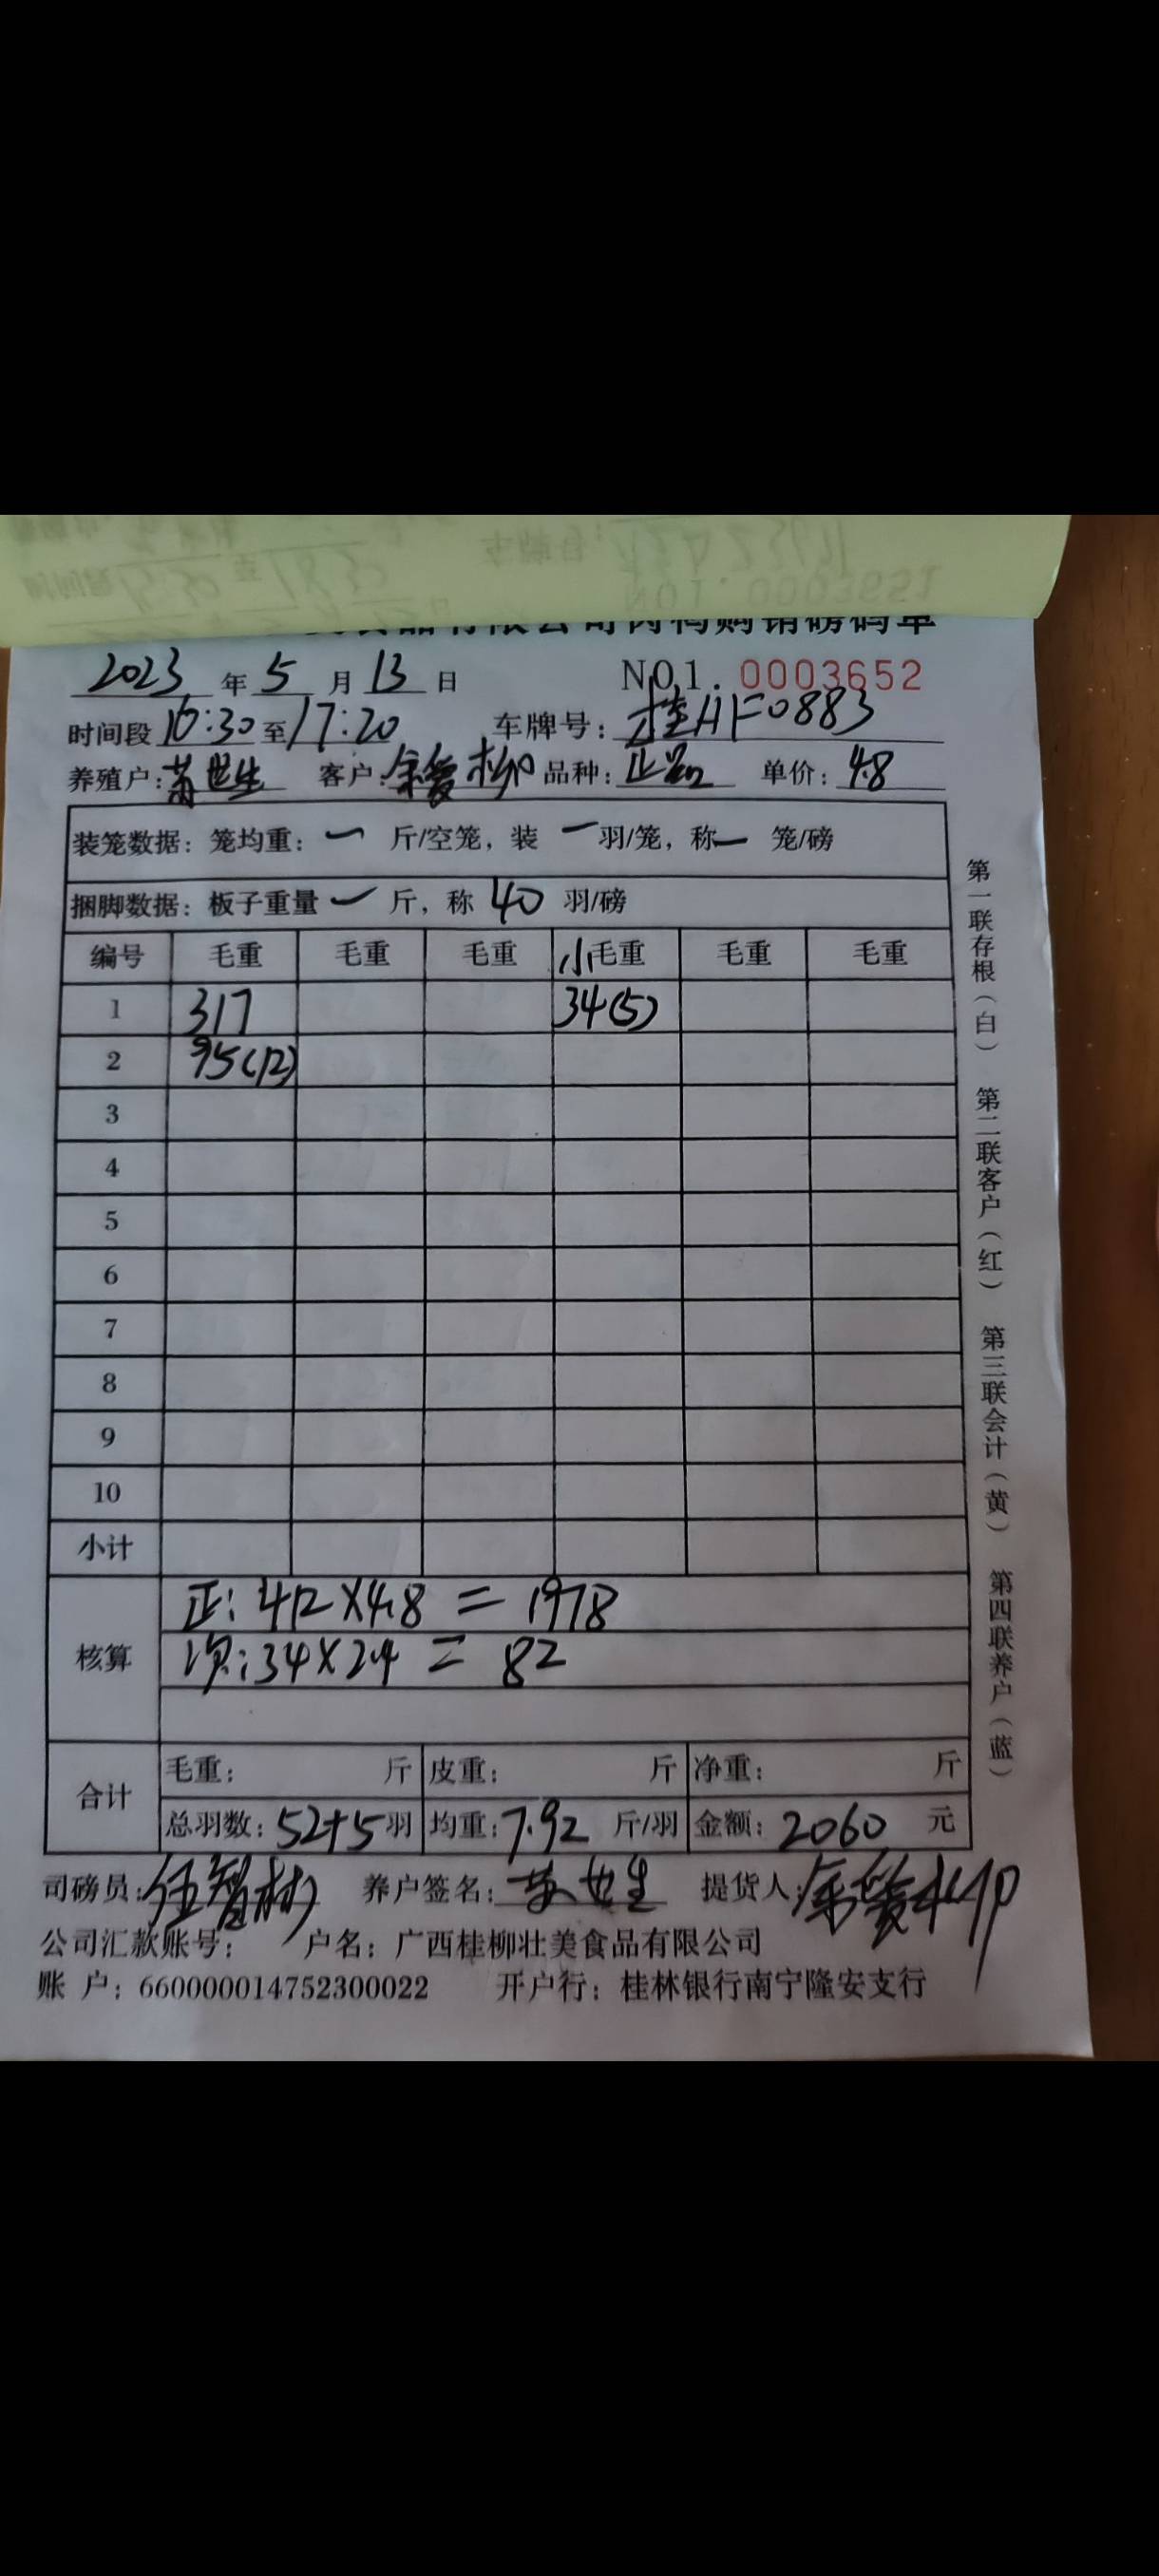 食品有限公司肉鸭购销磅码单
2023 年 5 月 13 日 NO1. 0003652
时间段 16:30 至 17:20 车牌号: 桂AF0883
养殖户: 世生 客户: 余爱柳 品种: 正品 单价: 4.8
装笼数据: 笼均重: 一 斤/空笼, 装 一 羽/笼, 称 一 笼/磅
捆脚数据: 板子重量 一 斤, 称 40 羽/磅
编号 毛重 毛重 毛重 小毛重 毛重 毛重
1 317 34(5)
2 95(12)
3
4
5
6
7
8
9
10
小计
核算
正: 412×4.8 = 1978
次: 34×2.4 = 82
合计
毛重: 斤 皮重: 斤 净重: 斤
总羽数: 52+5 羽 均重: 7.92 斤/羽 金额: 2060 元
司磅员: 伍智彬 养户签名: 世生 提货人: 余爱柳
公司汇款账号: 户名: 广西桂柳壮美食品有限公司
账 户: 660000014752300022 开户行: 桂林银行南宁隆安支行
第一联存根(白) 第二联客户(红) 第三联会计(黄) 第四联养户(蓝)